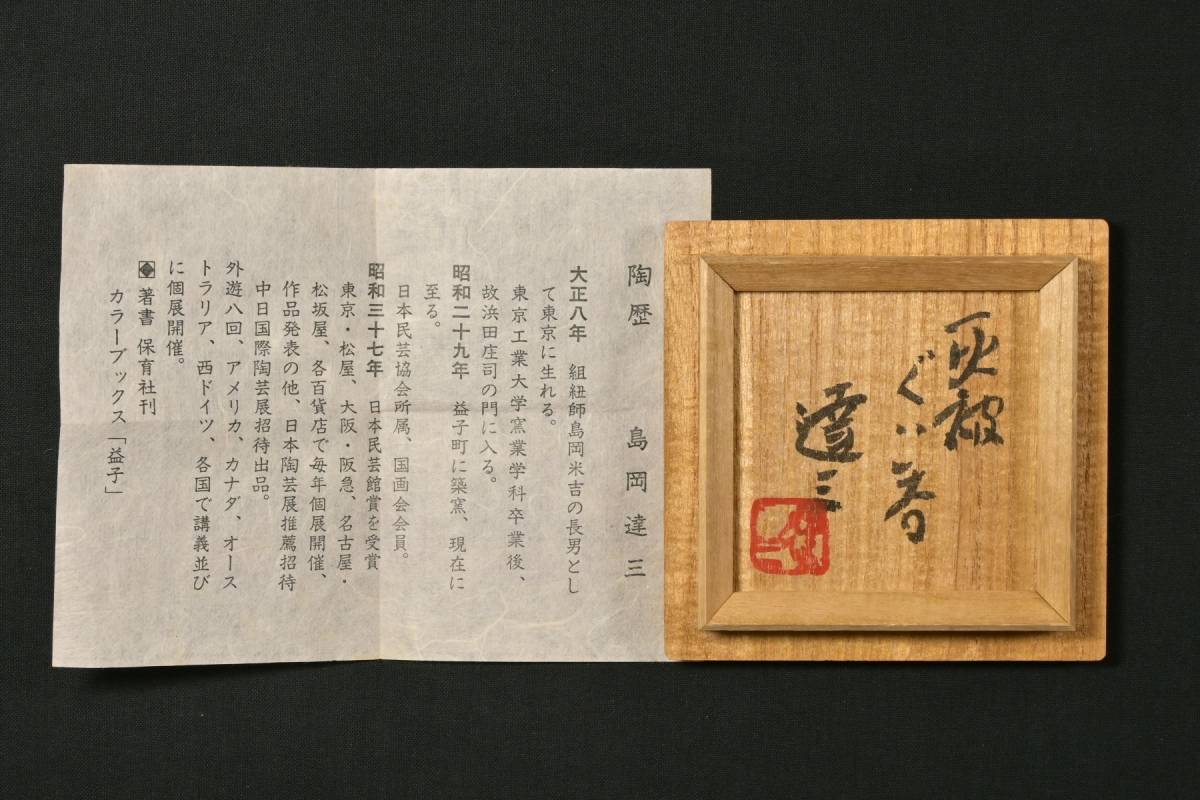 灰被
ぐい呑
達三
陶歴 島岡達三
大正八年 組紐師島岡米吉の長男とし
て東京に生れる。
東京工業大学窯業学科卒業後、
故浜田庄司の門に入る。
昭和二十九年 益子町に築窯、現在に
至る。
日本民芸協会所属、国画会会員。
昭和三十七年 日本民芸館賞を受賞
東京・松屋、大阪・阪急、名古屋・
松坂屋、各百貨店で毎年個展開催、
作品発表の他、日本陶芸展推薦招待
中日国際陶芸展招待出品。
外遊八回、アメリカ、カナダ、オース
トラリア、西ドイツ、各国で講義並び
に個展開催。
著書 保育社刊
カラーブックス「益子」